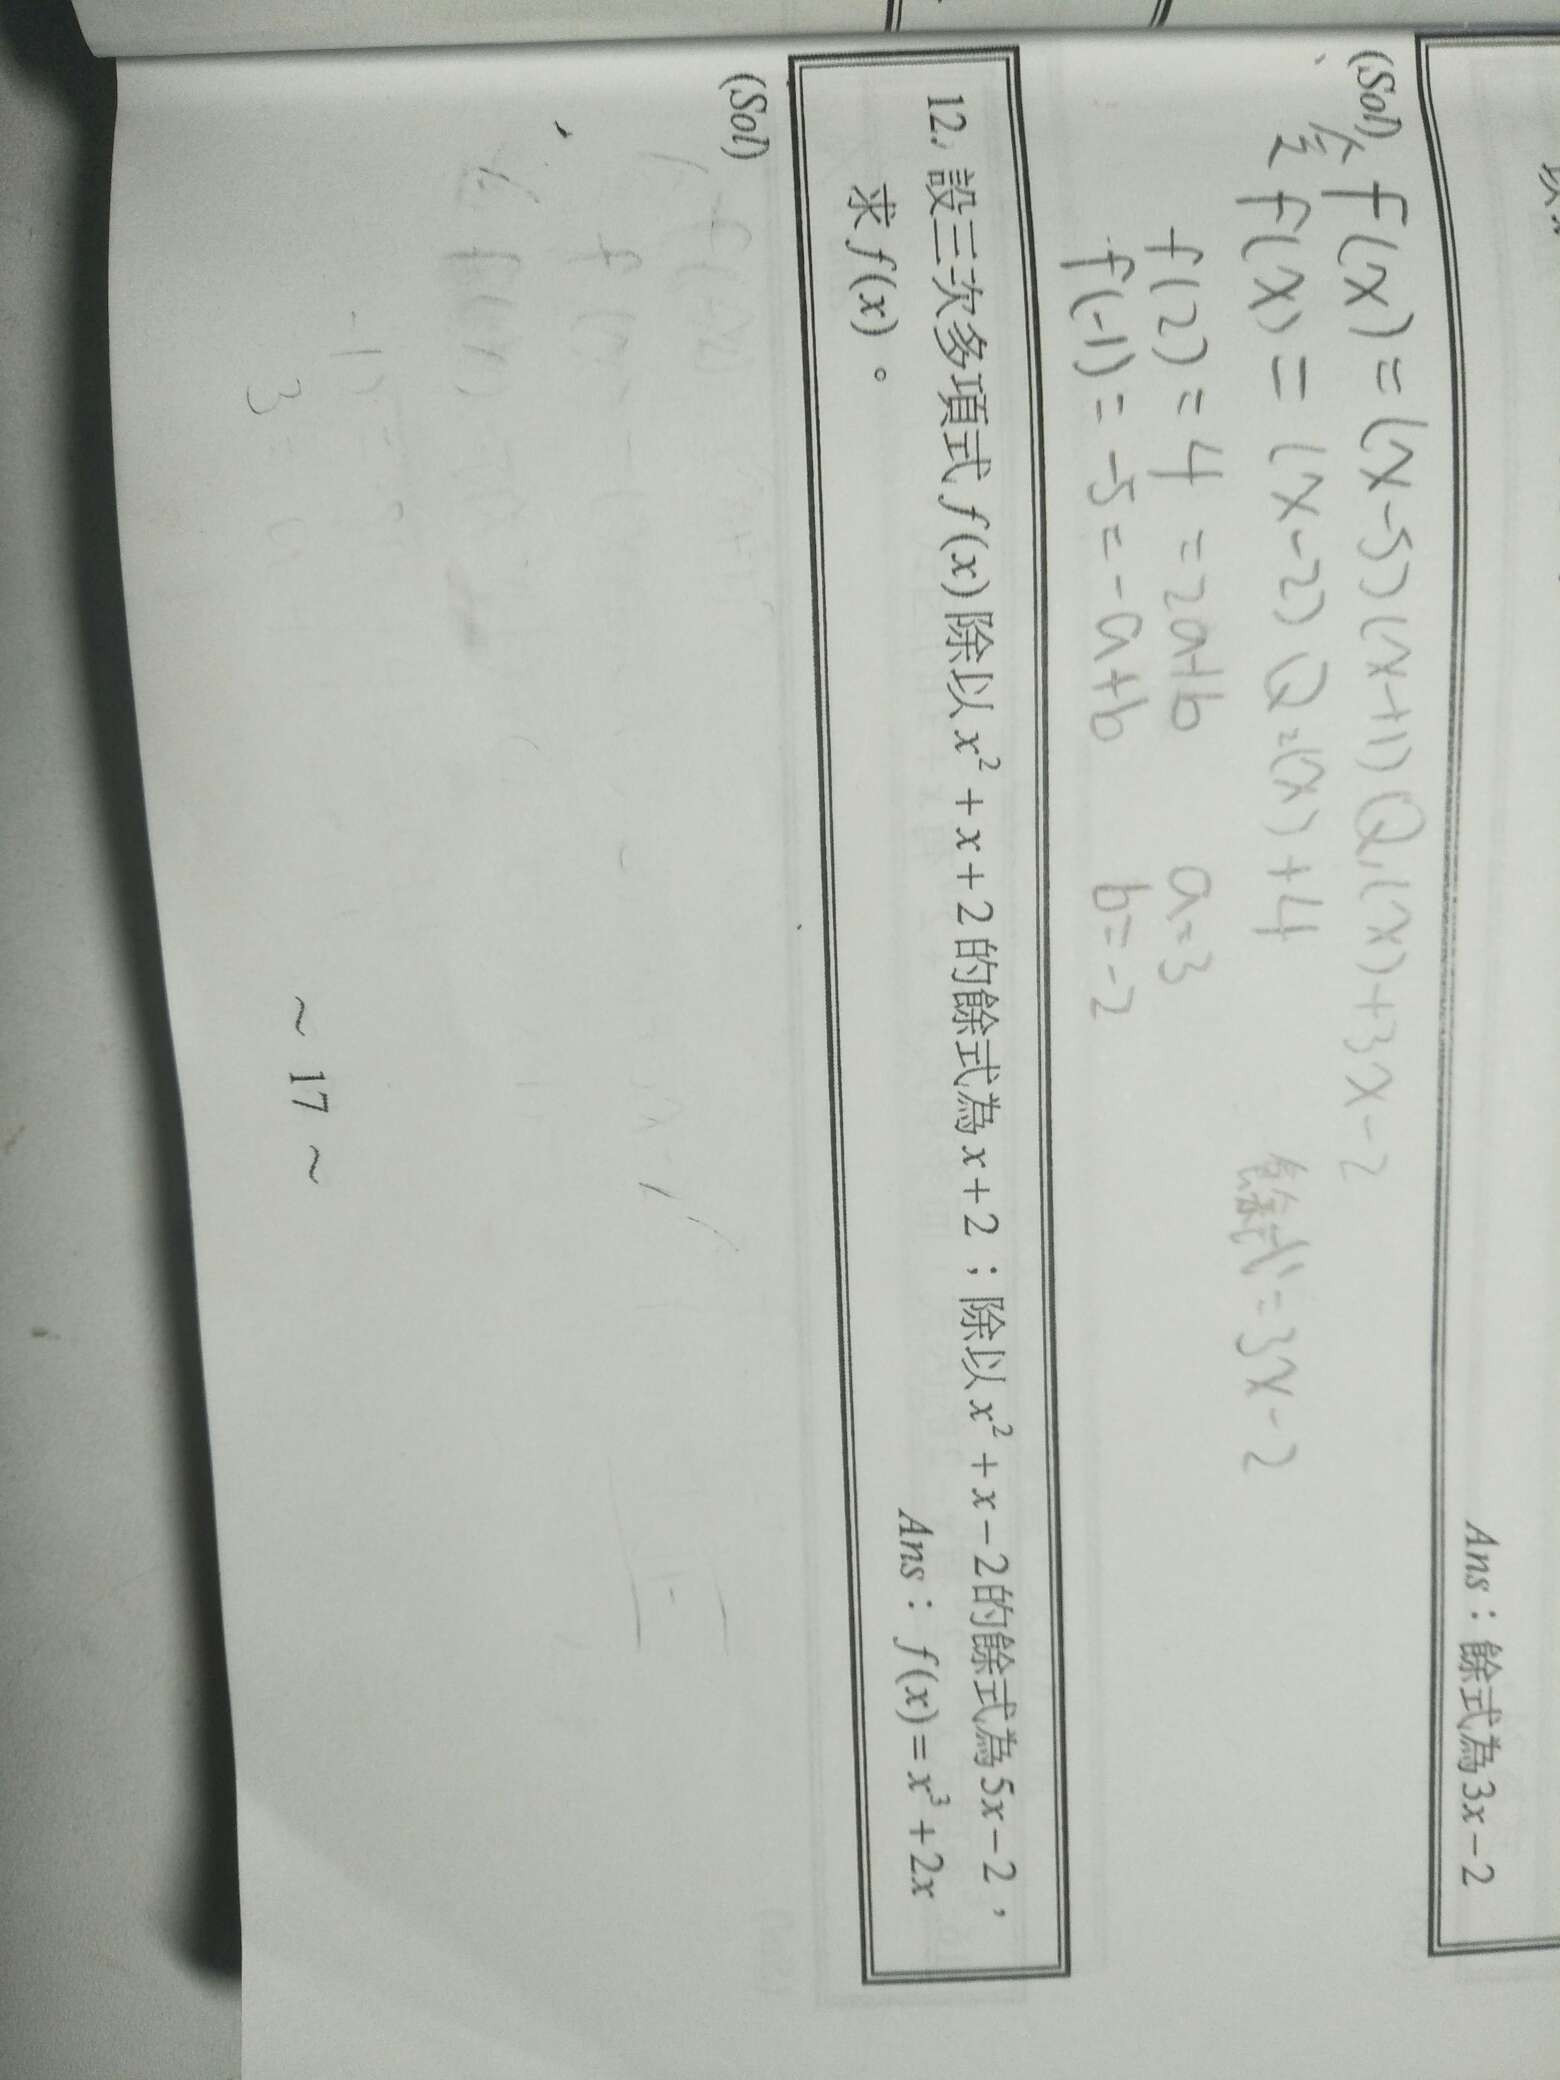 Ans：餘式為3x−2
(Sol) 令 f(x)=(x-5)(x+1)Q₁(x)+3x-2
令 f(x)=(x-2)Q₂(x)+4
餘式=3x-2
f(2)=4=2a+b a=3
f(-1)=-5=-a+b b=-2
12. 設三次多項式 f(x) 除以 x²+x+2 的餘式為 x+2；除以 x²+x−2 的餘式為 5x−2，
求 f(x)。 Ans：f(x)=x³+2x
(Sol)
~ 17 ~